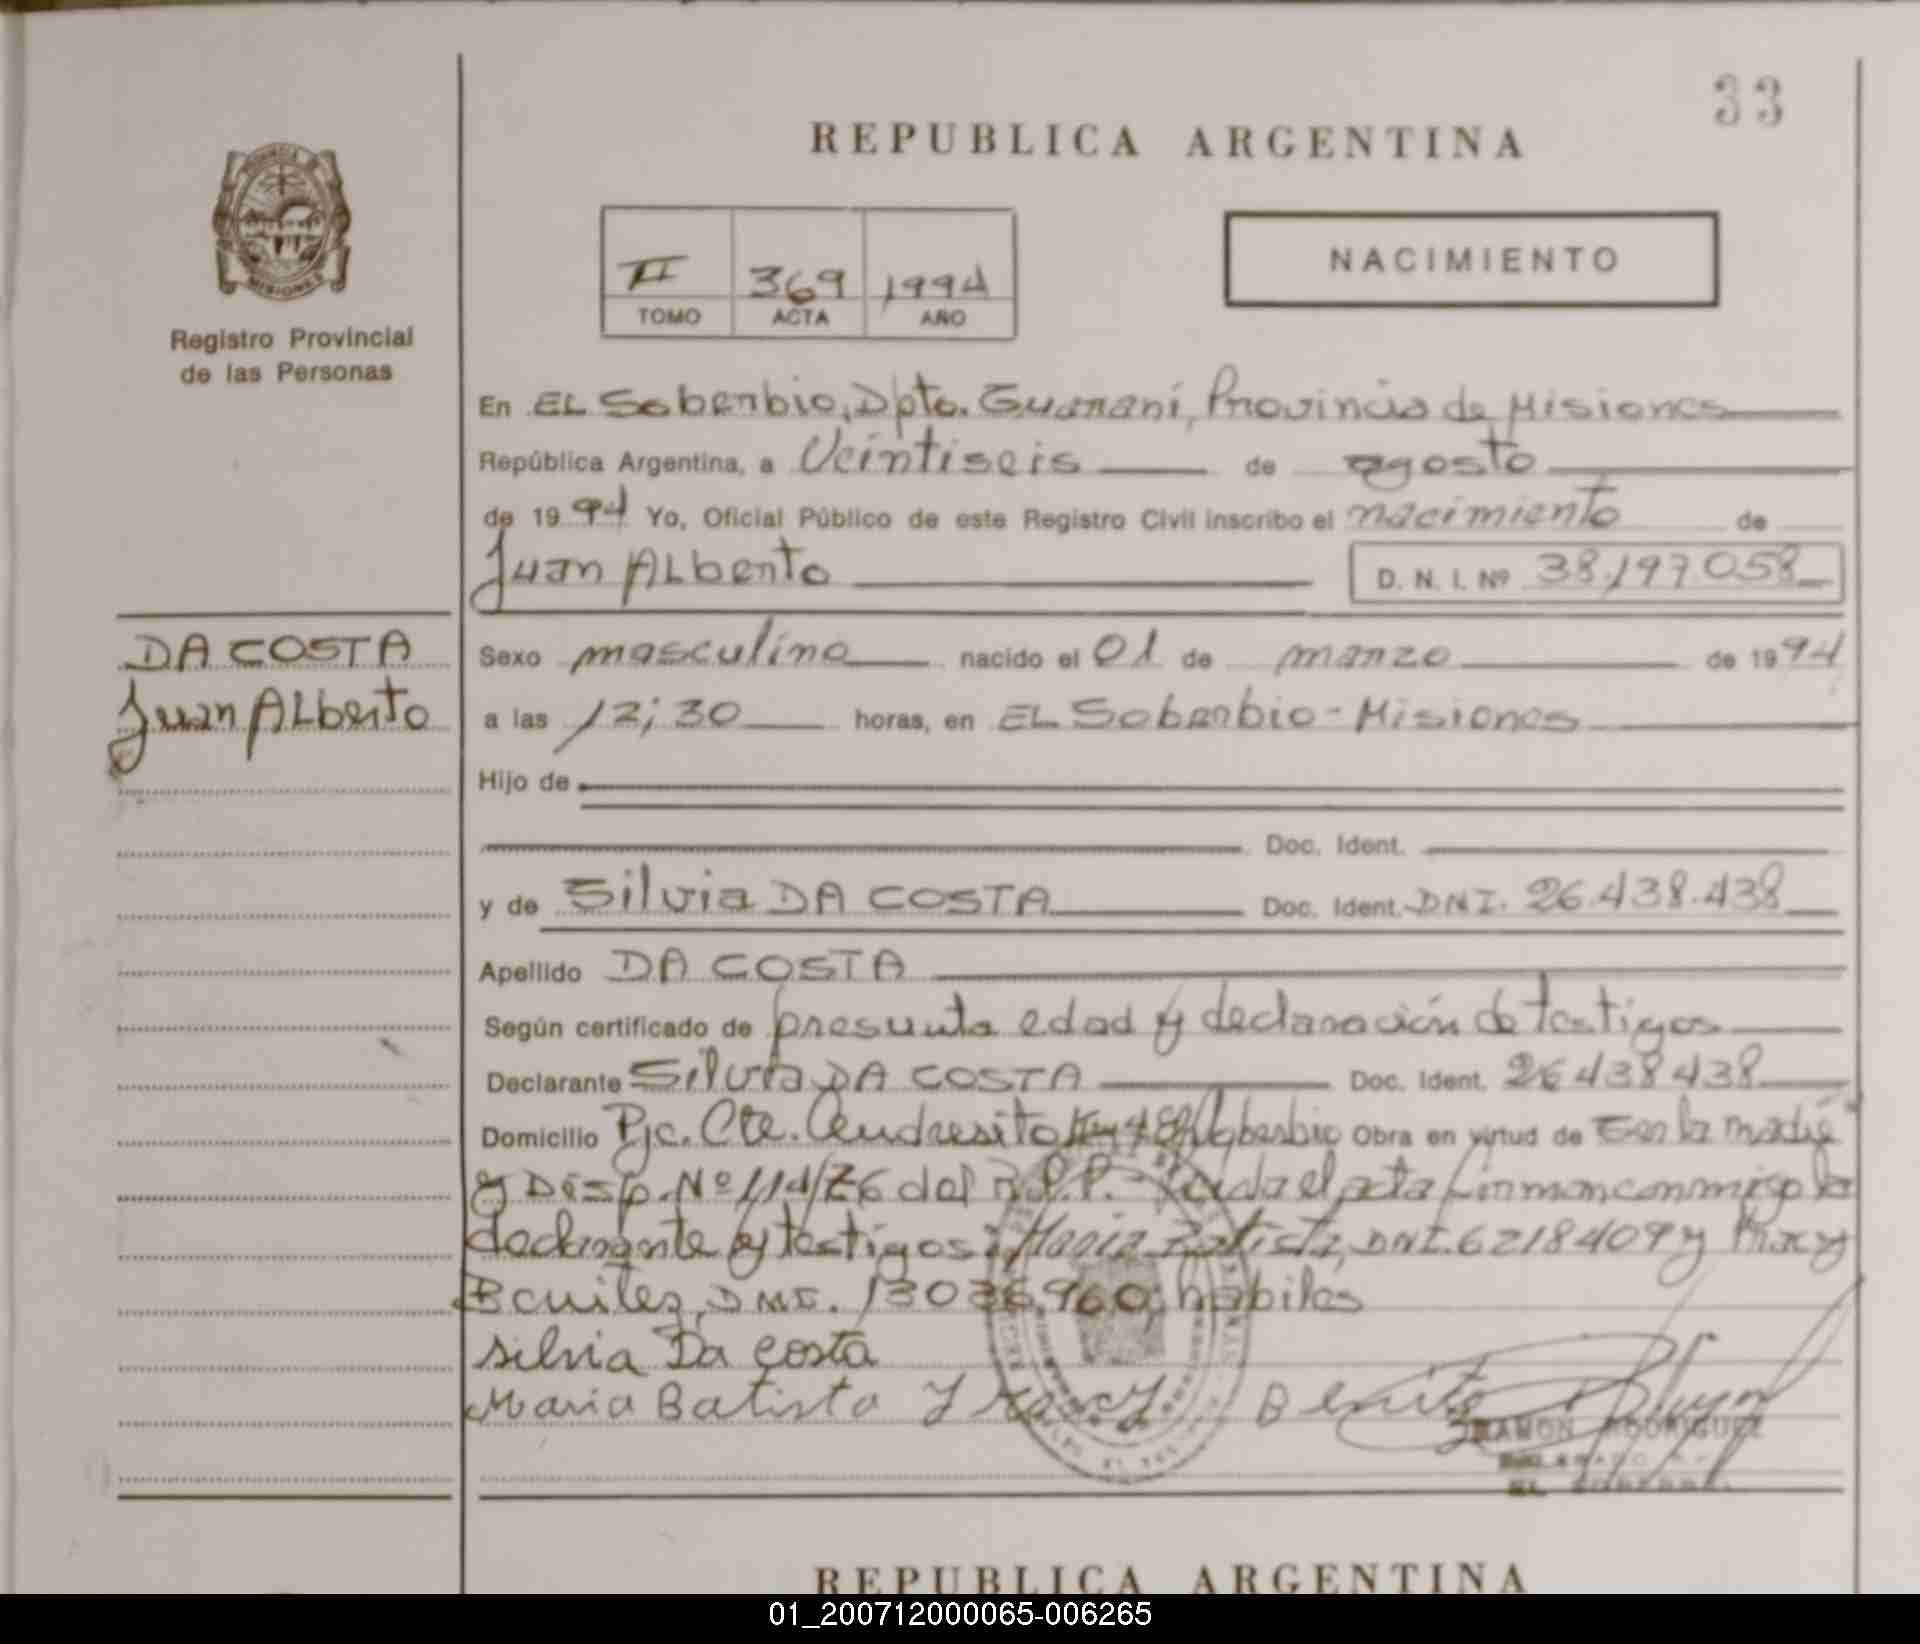 33
REPUBLICA ARGENTINA
MISIONES
II 369 1994
TOMO ACTA AÑO
NACIMIENTO
Registro Provincial
de las Personas
En EL Soberbio, Dpto. Guaraní, Provincia de Misiones
República Argentina, a Veintiseis de agosto
de 1994 Yo, Oficial Público de este Registro Civil inscribo el nacimiento de
Juan ALberto D. N. I. Nº 38.197058
DA COSTA
Juan ALberto
Sexo masculino nacido el 01 de marzo de 1994
a las 12;30 horas, en EL Soberbio - Misiones
Hijo de
Doc. Ident.
y de Silvia DA COSTA Doc. Ident. DNI. 26.438.438
Apellido DA COSTA
Según certificado de presunta edad y declaración de testigos
Declarante Silvia DA COSTA Doc. Ident. 26438438
Domicilio Pje. Cte. Andresito Soberbio Obra en virtud de Ser la madre
y Disp. Nº 114/76 del R.P.P. - Leida el acta firman conmigo la
declarante y testigos: Maria Batista, DNI. 6218409 y
Benitez, DNI. 13036.960; habiles
silvia Da costa
Maria Batista Benito
RAMON RODRIGUEZ
REPUBLICA ARGENTINA
01_200712000065-006265